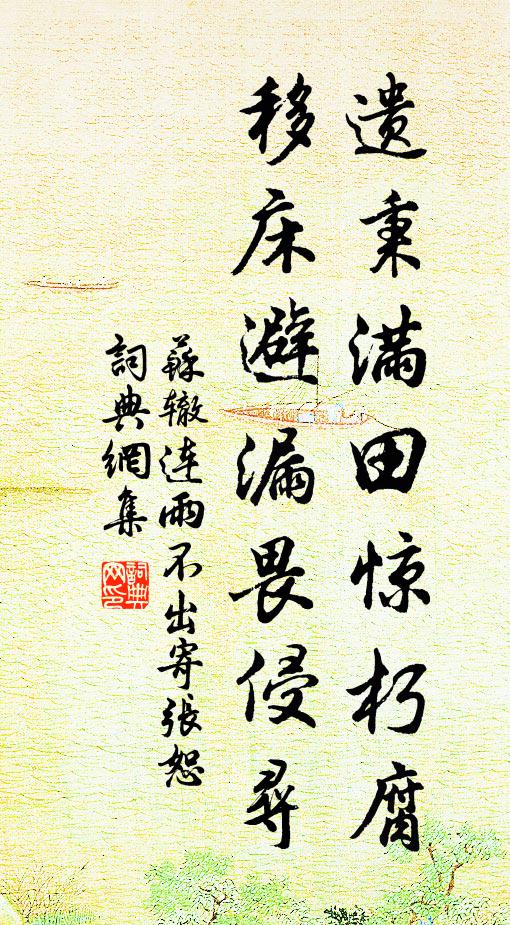 遗秉满田惊朽腐
移床避漏畏侵寻
蘇辙连雨不出寄張恕
詞典網集
詞典网印